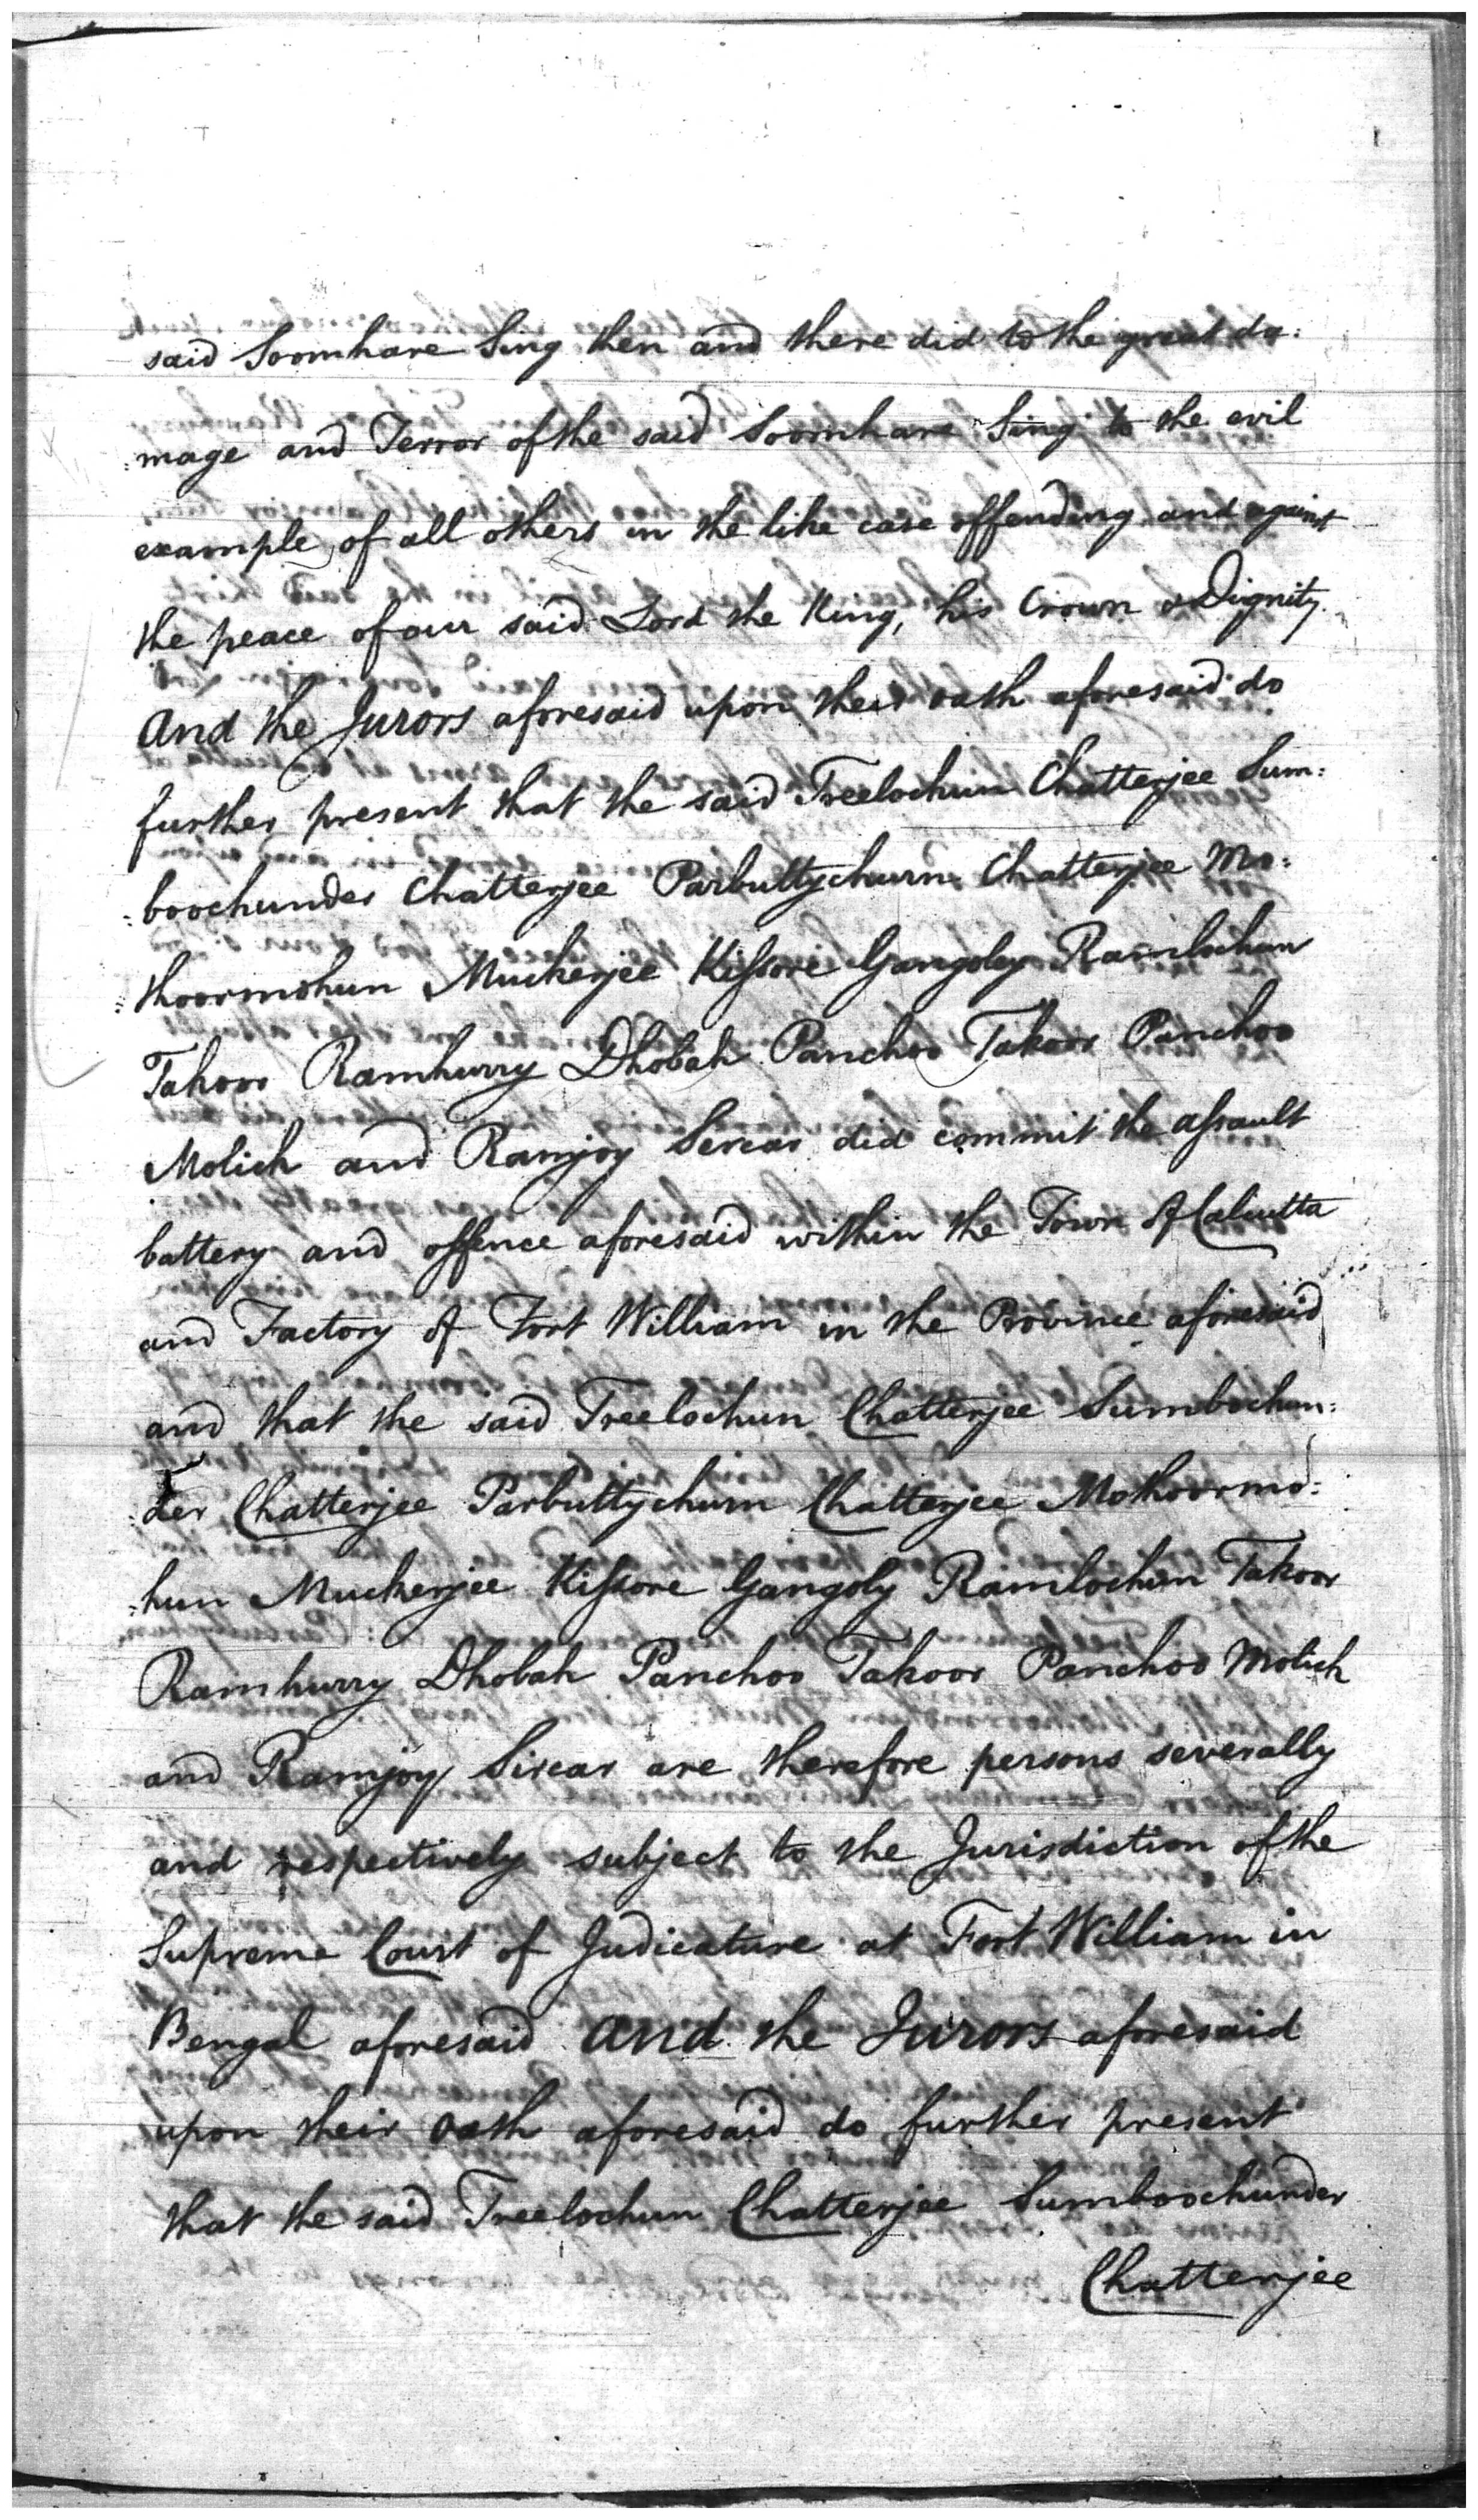 said Soomhare Sing then and there did to the great da:
:mage and Terror of the said Soomhare Sing to the evil
example of all others in the like case offending and against
the peace of our said Lord the King, his Crown & Dignity.
And the Jurors aforesaid upon their oath aforesaid do
further present that the said Treelochun Chatterjee Sum:
:boochunder Chatterjee Parbuttychurn Chatterjee Mo:
:thoormohun Muckerjee Kissore Gangoly Ramlochun
Takoor Ramhurry Dhobah Panchoo Takoor Panchoo
Molich and Ramjoy Sercar did commit the assault
battery and offence aforesaid within the Town of Calcutta
and Factory of Fort William in the Province aforesaid
and that the said Treelochun Chatterjee Sumbochun:
:der Chatterjee Parbuttychurn Chatterjee Mothoormo:
:hun Muckerjee Kissore Gangoly Ramlochun Takoor
Ramhurry Dhobah Panchoo Takoor Panchoo Molich
and Ramjoy Sircar are therefore persons severally
and respectively subject to the Jurisdiction of the
Supreme Court of Judicature at Fort William in
Bengal aforesaid And the Jurors aforesaid
upon their oath aforesaid do further present
that the said Treelochun Chatterjee Sumboochunder
Chatterjee